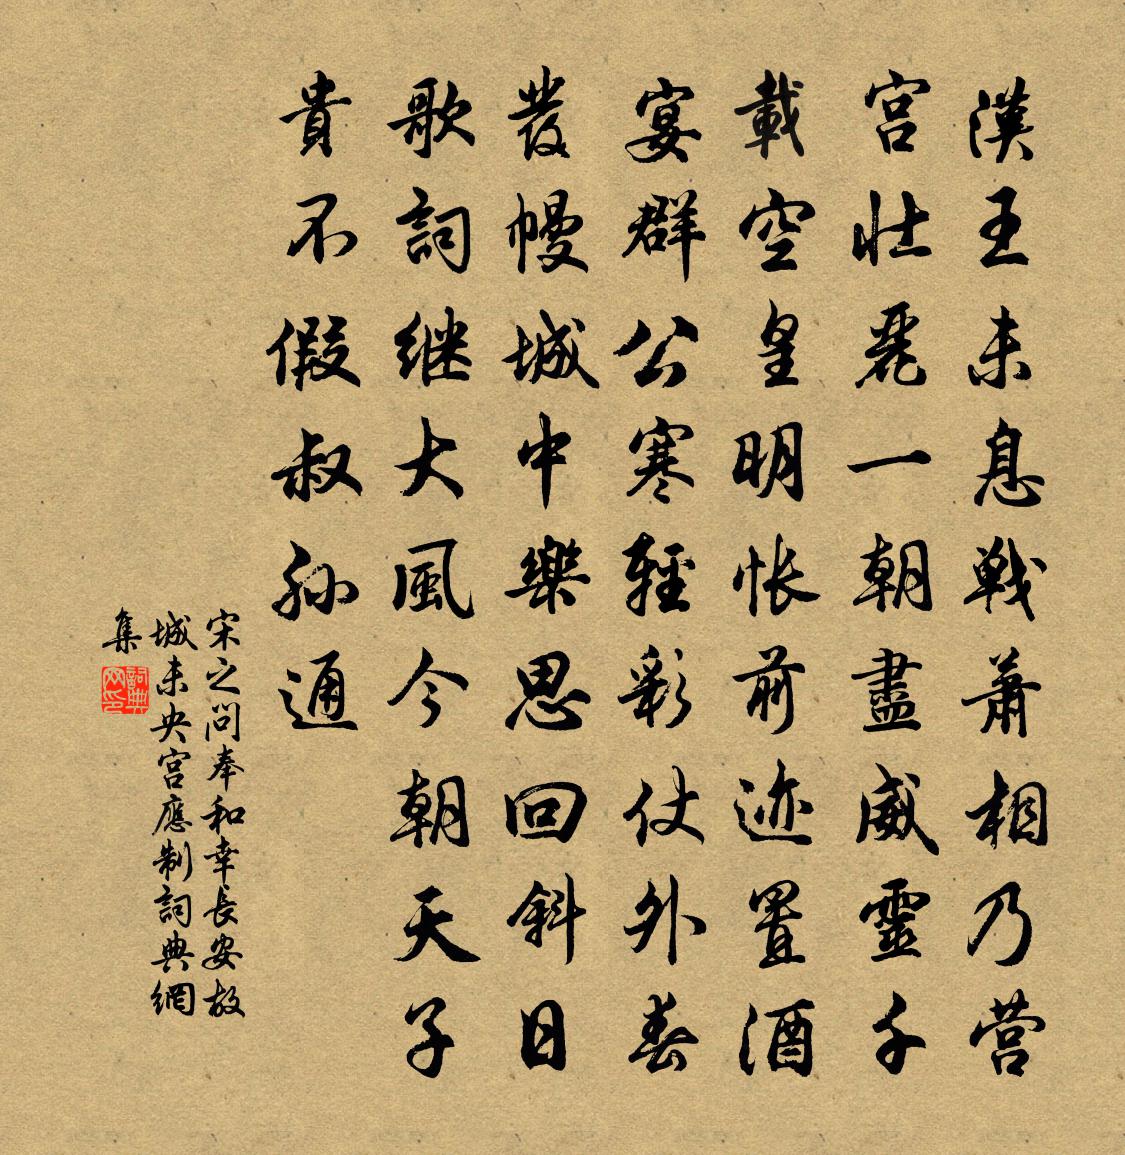 漢王未息戦萧相乃营
宫壮麗一朝盡威靈千
載空皇明怅前迹置酒
宴群公寒輕彩仗外春
發幔城中樂思回斜日
歌詞继大風今朝天子
貴不假叔孫通
宋之问奉和幸長安故
城未央宫應制詞典網
集
詞典网印